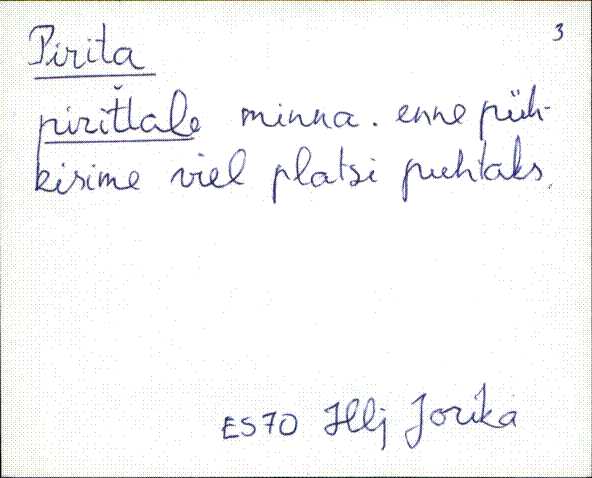 Pirita 3
piriťtale minna. enne püh-
kisime viel platsi puhtaks.
ES70 Hlj Jorika